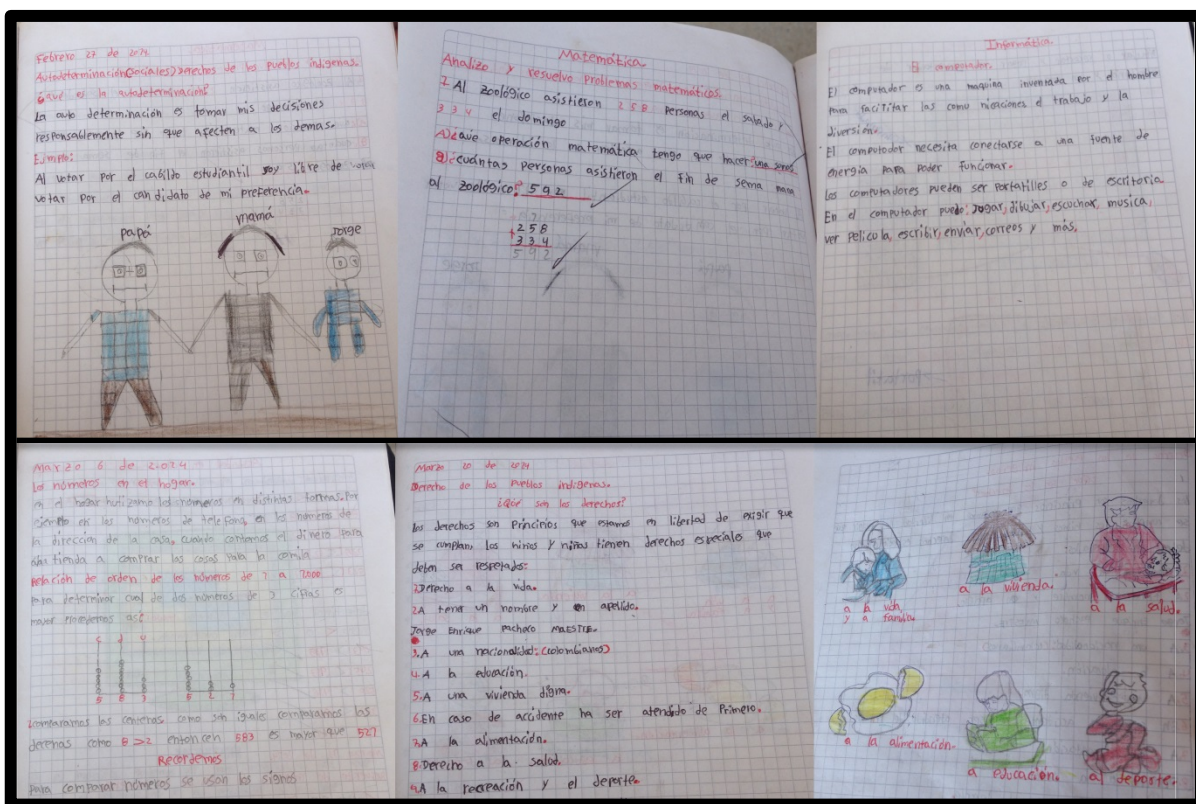 Febrero 27 de 2024.
Autodeterminación(Sociales) Derechos de los pueblos indigenas.
¿qué es la autodeterminación?
La auto determinación es tomar mis decisiones
responsablemente sin que afecten a los demas.
Ejmplo:
Al votar por el cabildo estudiantil soy libre de votar
votar por el candidato de mi preferencia.
papá
mamá
Jorge
Matemática
Analizo y resuelvo problemas matemáticos.
1. Al zoológico asistieron 258 personas el sabado y
334 el domingo
A)¿que operación matemática tengo que hacer: una
B)¿cuántas personas asistieron el fin de sema mana
al zoológico? 592
258
+ 334
592
Informática.
El computador.
El computador es una maquina inventada por el hombre
para facititar las como nicaciones el trabajo y la
diversión.
El computador necesita conectarse a una fuente de
energia para poder funcionar.
los computadores pueden ser portatilles o de escritoria
En el computador puedo: Jogar, dibujar, escuchar, musica,
ver pelicola, escribir, enviar, correos y más.
Marzo 6 de 2.024
Los números en el hogar.
en el hogar hutilzamo los números en distintas formas. Por
ejemplo en los números de telefono, en los números de
la dirección de la casa, cuando contamos el dinero para
tienda a comprar las cosas para la comia
Relación de orden de los números de ? a 2000
para determinar cual de dos números de 3 cifras es
mayor procedemos asi:
c d u
5 8 3 5 2 7
Comparamos las centenas como son iguales comparamos las
decenas como 8 > 2 entoncen 583 es mayor que 527
Recordemos
para comparar números se uson los signos
Marzo 20 de 2024
Derecho de los Pueblos indigenas.
¿Qué son los derechos?
los derechos son Principios que estamos en libertad de exigir que
se cumplan, los niños y niñas tienen derechos especiales que
deben ser respetados:
1.Derecho a la vida.
2.A tener un nombre y un apellido.
Jorge Enrique pacheco MAESTRE.
3.A una nacionalidad: (colombianos)
4.A la educación.
5.A una vivienda digna.
6.En caso de accidente ha ser atendido de Primero.
7.A la alimentación.
8.Derecho a la salud.
9.A la recreación y el deporte.
a la vida
y a familia.
a la vivienda.
a la salud.
a la alimentación.
a educación.
al deporte.